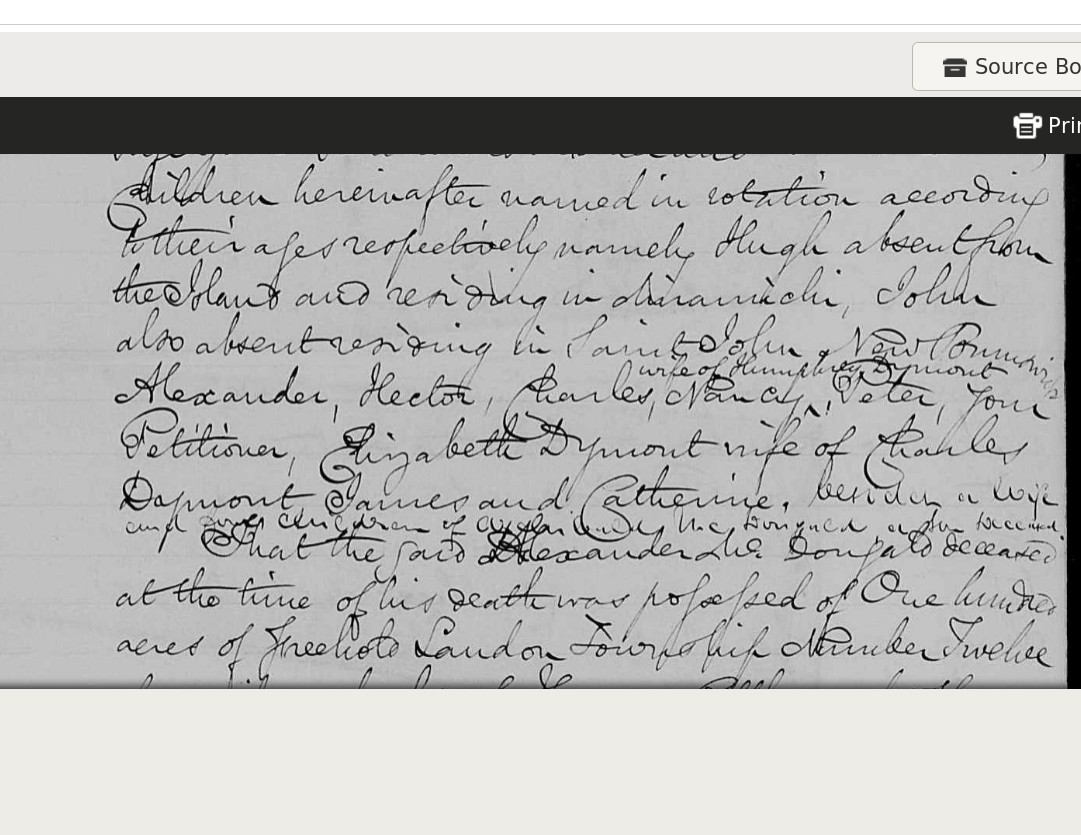 Source Bo
Prin
Children hereinafter named in rotation according
to their ages respectively namely Hugh absent from
the Island and residing in Miramichi, John
also absent residing in Saint John New Brunswick
wife of Humphrey Dymont
Alexander, Hector, Charles, Nancy, Peter, Your
Petitioner, Elizabeth Dymont wife of Charles
Dymont James and Catherine, besides a wife
and children of Alexander Mc Dougald deceased
That the said Alexander Mc Dougald deceased
at the time of his death was possessed of One hundred
acres of Freehold Land on Township Number Twelve